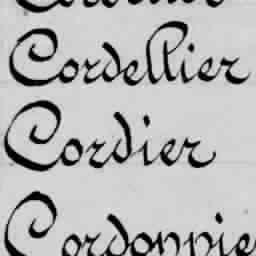 Cordellier
Cordier
Cordonnie